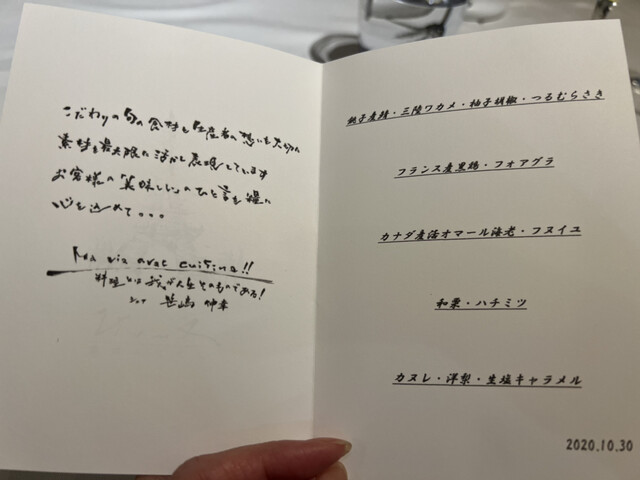 こだわりの旬の食材と生産者の想いも大切に
素材を最大限に活かし表現しています
お客様の「美味しい」のひと言を糧に
心を込めて。。。
Ma vie avec cuisine!!
料理とは我が人生そのものである!
シェフ 笹嶋 伸幸
銚子産鰆・三陸ワカメ・柚子胡椒・つるむらさき
フランス産黒鶏・フォアグラ
カナダ産活オマール海老・フヌイユ
和栗・ハチミツ
カヌレ・洋梨・生塩キャラメル
2020.10.30